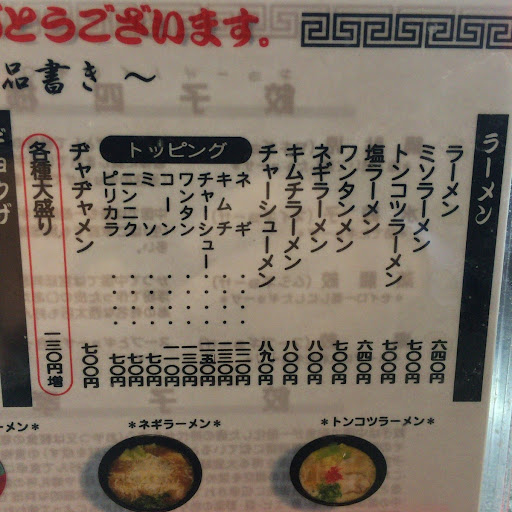 とうございます。
品書き ～
ラーメン
ラーメン 六四〇円
ミソラーメン 七〇〇円
トンコツラーメン 七〇〇円
塩ラーメン 六四〇円
ワンタンメン 七〇〇円
ネギラーメン 八〇〇円
キムチラーメン 八〇〇円
チャーシューメン 八九〇円
トッピング
ネギ
キムチ
チャーシュー
ワンタン
コーン
ミソ 七〇円
ニンニク 七〇円
ピリカラ 七〇円
ヂャヂャメン 七〇〇円
各種大盛り 一三〇円増
＊トンコツラーメン＊
＊ネギラーメン＊
ーメン＊